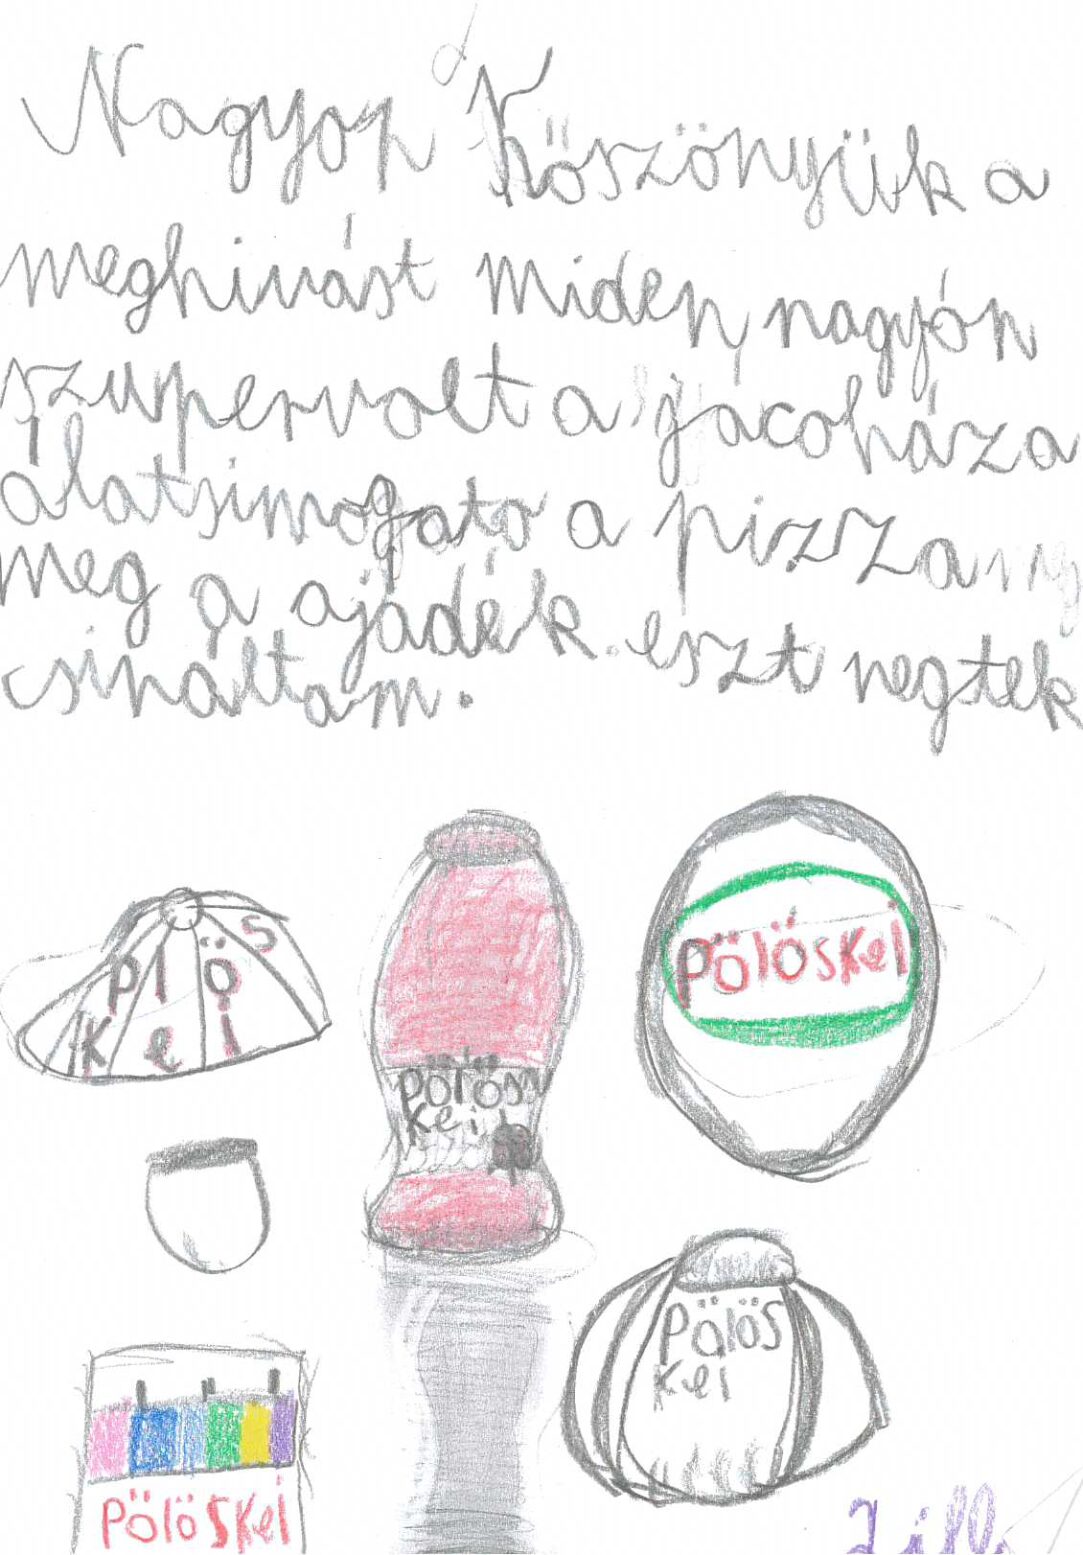 Nagyon Köszönyük a
meghivást miden nagyón
szupervolt a jacoháza
álatsimogato a pizza
meg a ajádék. eszt negtek
csináltam.
Pölöskei
Pölöskei
Plös
kei
Pölös
kei
Pölös
kei
Lilla